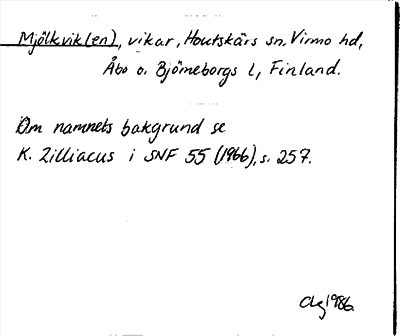 Mjölkvik(en), vikar, Houtskärs sn, Virmo hd,
Åbo o. Björneborgs l, Finland.
Om namnets bakgrund se
K. Zilliacus i SNF 55 (1966), s. 257.
1986.